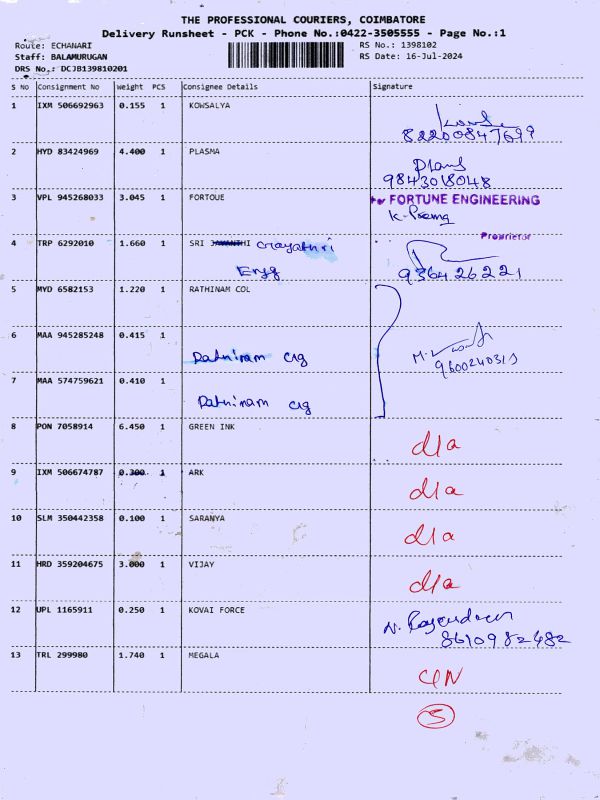 THE PROFESSIONAL COURIERS, COIMBATORE
Delivery Runsheet - PCK - Phone No.:0422-3505555 - Page No.:1
Route: ECHANARI RS No.: 1398102
Staff: BALAMURUGAN RS Date: 16-Jul-2024
DRS No.: DCJB139810201
S No Consignment No Weight PCS Consignee Details Signature
1 IXM 506692963 0.155 1 KOWSALYA
82200847699
2 HYD 83424969 4.400 1 PLASMA
9843018048
3 VPL 945268033 3.045 1 FORTOUE FORTUNE ENGINEERING
K. Prema
Proprietor
4 TRP 6292010 1.660 1 SRI Gayathri
Engg 936426221
5 MYD 6582153 1.220 1 RATHINAM COL
6 MAA 945285248 0.415 1
Ratninam clg 9600240313
7 MAA 574759621 0.410 1
Ratninam clg
8 PON 7058914 6.450 1 GREEN INK
d/a
9 IXM 506674787 0.300 1 ARK
d/a
10 SLM 350442358 0.100 1 SARANYA
d/a
11 HRD 359204675 3.000 1 VIJAY
d/a
12 UPL 1165911 0.250 1 KOVAI FORCE
N. Rajendran
8610982482
13 TRL 299980 1.740 1 MEGALA
5